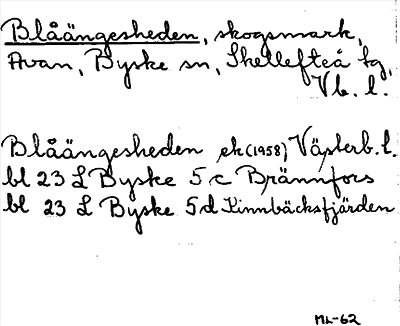 Blåängesheden, skogsmark,
Avan, Byske sn, Skellefteå tg,
Vb. l.
Blåängesheden ek (1958) Västerb. l.
bl 23 L Byske 5 c Brännfors
bl 23 L Byske 5 d Kinnbäcksfjärden
ML-62